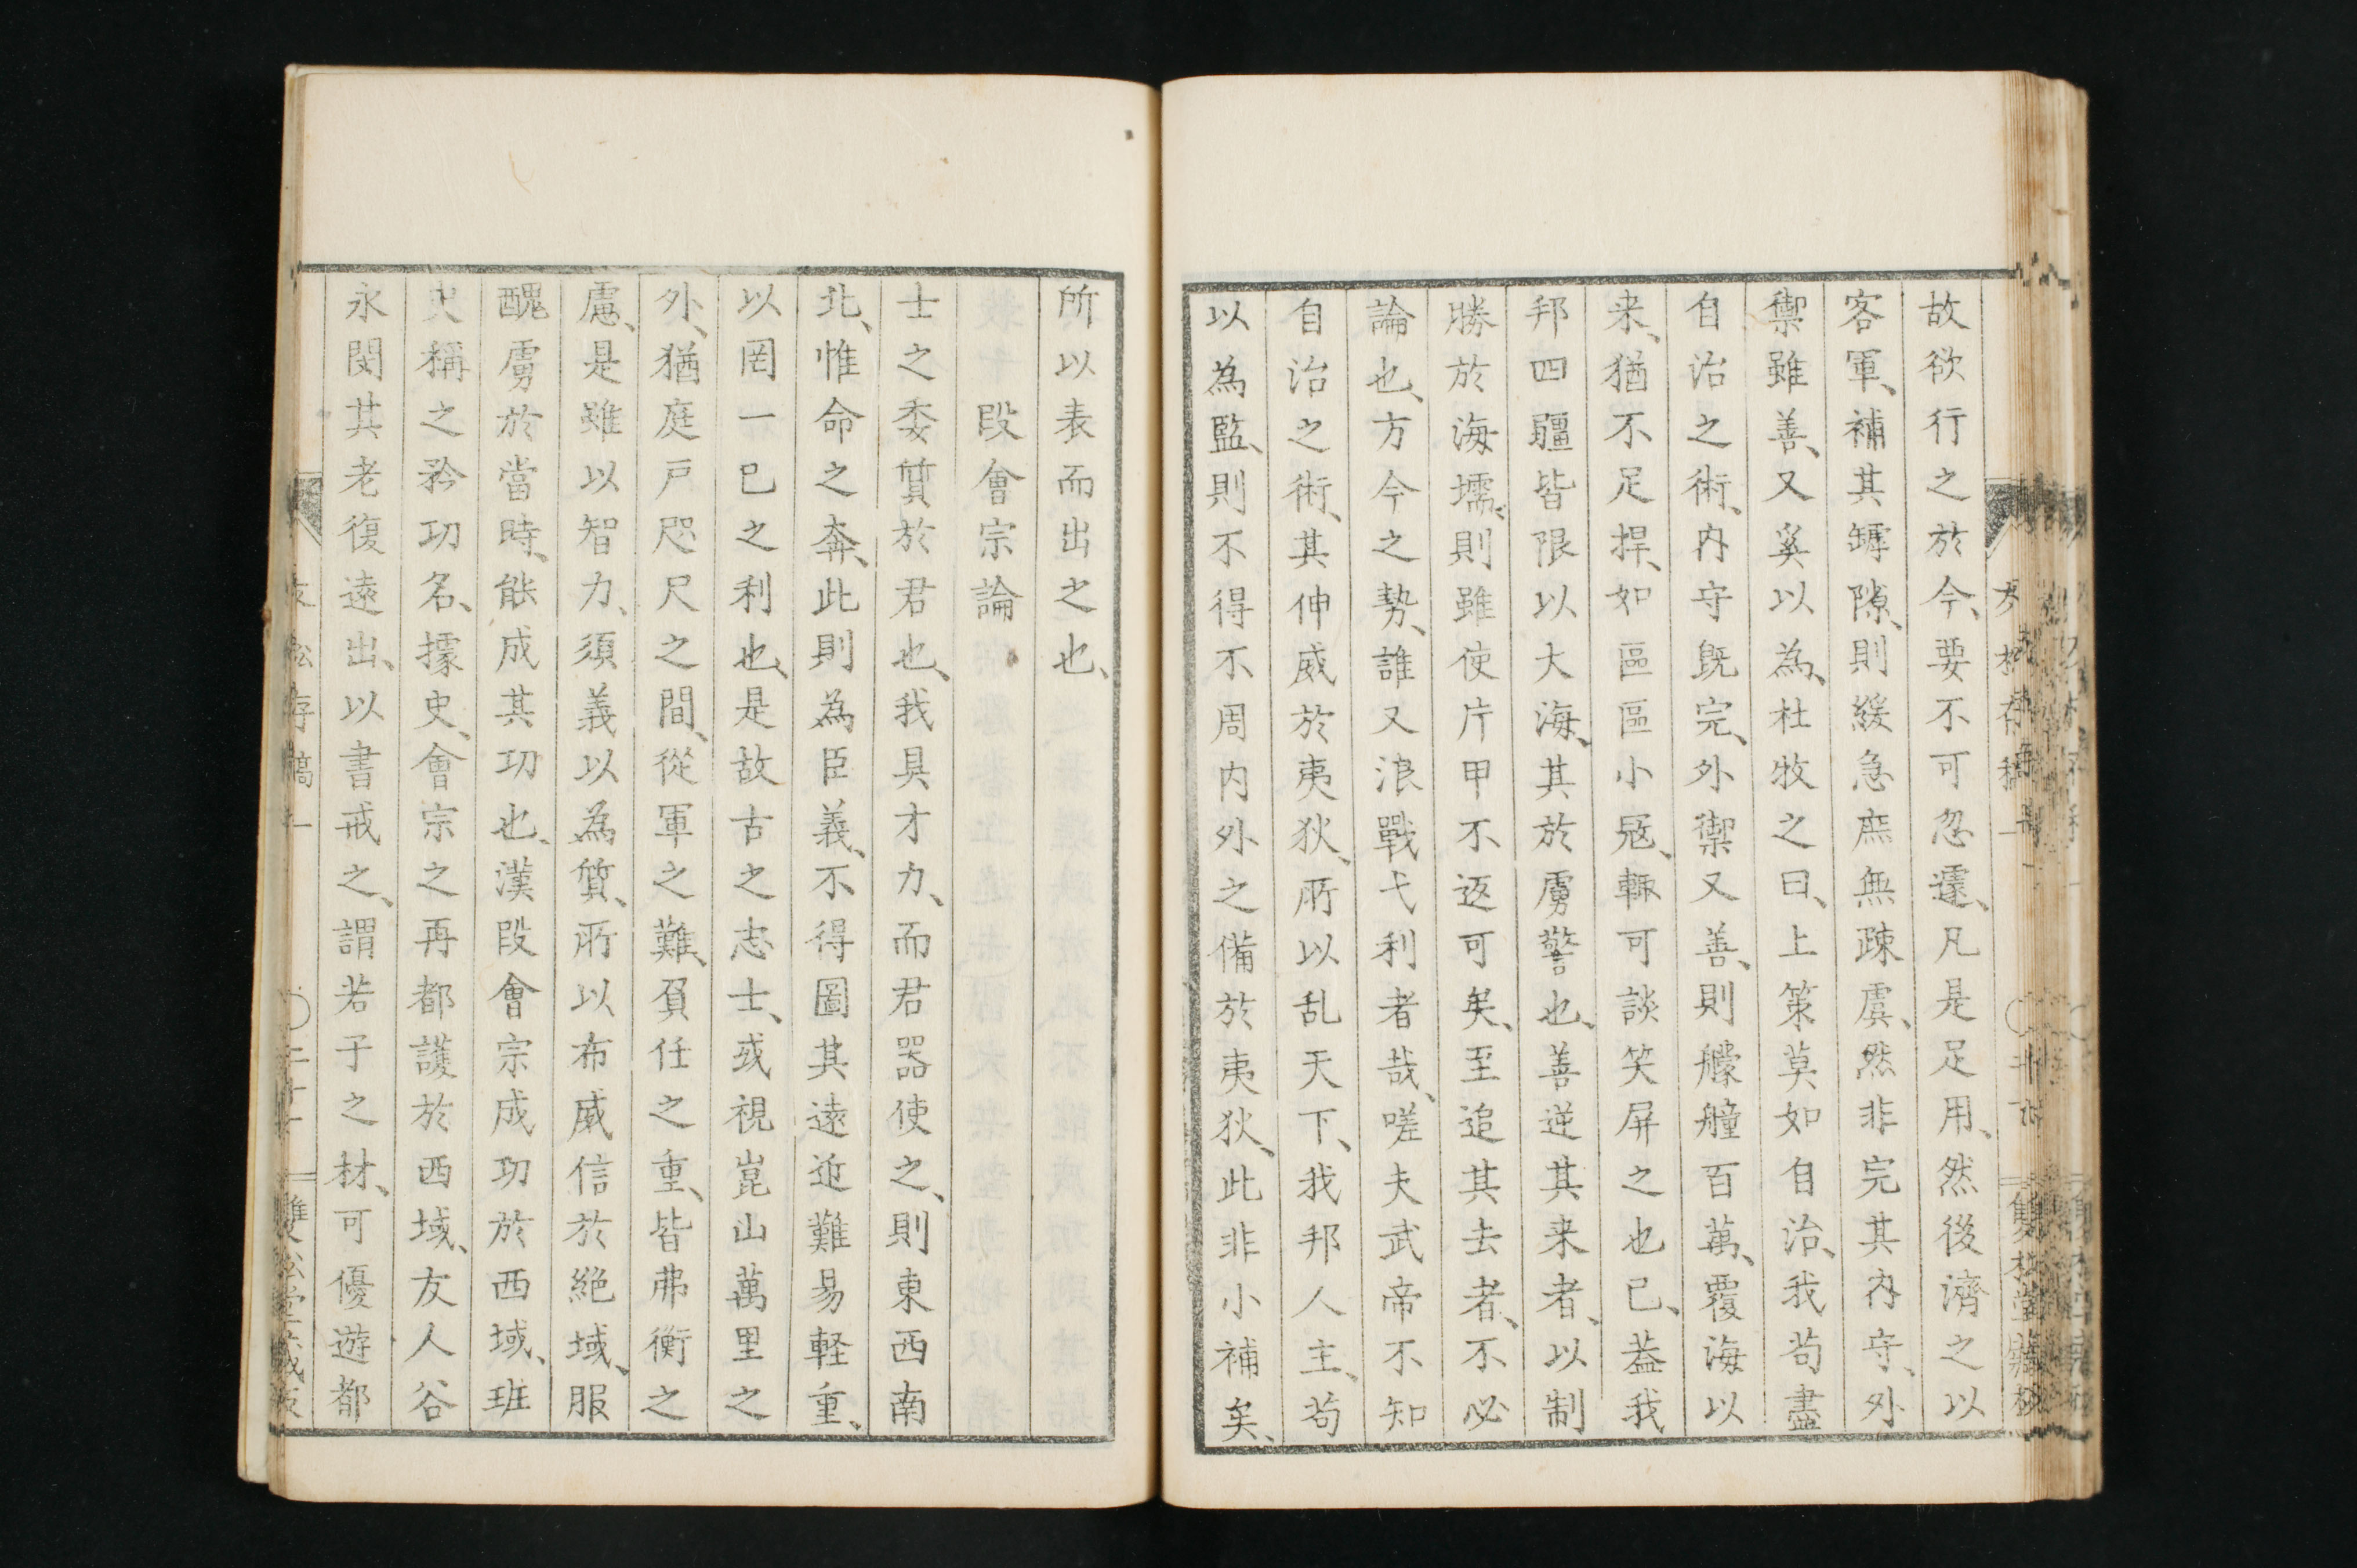 故欲行之於今、要不可忽遽、凡是足用、然後濟之以
客軍、補其罅隙、則緩急庶無疎虞、然非完其内守、外
禦雖善、又奚以為、杜牧之曰、上策莫如自治、我苟盡
自治之術、内守既完、外禦又善、則艨艟百萬、覆海以
来、猶不足捍、如區區小冦、輙可談笑屏之也已、葢我
邦四疆皆限以大海、其於虜警也、善逆其来者、以制
勝於海壖、則雖使片甲不返可矣、至追其去者、不必
論也、方今之勢、誰又浪戰弋利者哉、嗟夫武帝不知
自治之術、其伸威於夷狄、所以乱天下、我邦人主、苟
以為監、則不得不周内外之備於夷狄、此非小補矣、
所以表而出之也、
段會宗論
士之委質於君也、我具才力、而君器使之、則東西南
北、惟命之奔、此則為臣義、不得圖其遠近難易軽重、
以罔一己之利也、是故古之志士、或視崑山萬里之
外、猶庭戸咫尺之間、從軍之難、負任之重、皆弗衡之
慮、是雖以智力、須義以為質、所以布威信於絶域、服
醜虜於當時、能成其功也、漢段會宗成功於西域、班
史稱之矜功名、據史、會宗之再都護於西域、友人谷
永閔其老復遠出、以書戒之、謂若子之材、可優遊都